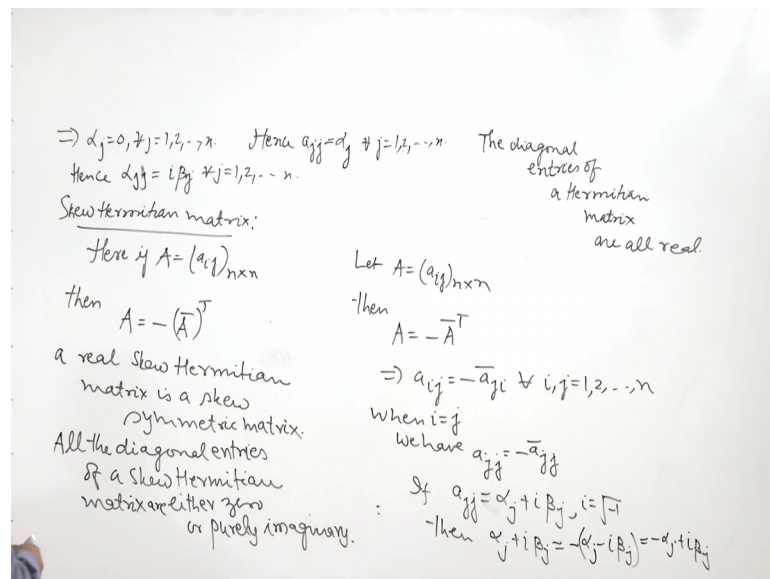 ⇒ αj=0, ∀j=1,2,-,n. Hence ajj=αj ∀ j=1,2,--,n. The diagonal
entries of
a Hermitian
matrix
are all real.
Hence αjj = iβj ∀j=1,2,-- n.
Skew Hermitian matrix:
Here if A=(aij)n×n
then
A = -(A̅)ᵀ
a real Skew Hermitian
matrix is a skew
symmetric matrix.
All the diagonal entries
of a Skew Hermitian
matrix are either zero
or purely imaginary.
Let A=(aij)n×n
Then
A = -A̅ᵀ
⇒ aij = -a̅ji ∀ i,j=1,2,--,n
When i=j
we have ajj = -a̅jj
If ajj = αj+iβj, i=√-1
Then αj+iβj = -(αj-iβj) = -αj+iβj